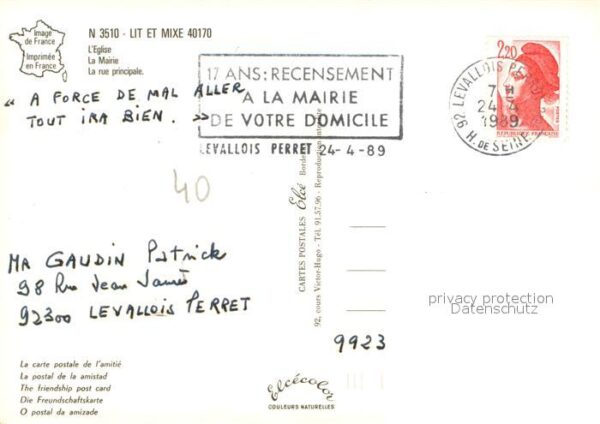 Image
de France
Imprimée
en France
N 3510 - LIT ET MIXE 40170
L'Eglise
La Mairie
La rue principale.
17 ANS: RECENSEMENT
A LA MAIRIE
DE VOTRE DOMICILE
LEVALLOIS PERRET 24-4-89
2,20
RÉPUBLIQUE FRANÇAISE
92 LEVALLOIS PERRET
7H
24-4
1989
H. DE SEINE
« A FORCE DE MAL ALLER
TOUT IRA BIEN. »
40
MR GAUDIN Patrick
98 Rue Jean Jaurès
92300 LEVALLOIS PERRET
CARTES POSTALES Elcé
92, cours Victor-Hugo - Tél. 91.57.96 - Reproduction interdite
9923
privacy protection
Datenschutz
La carte postale de l'amitié
La postal de la amistad
The friendship post card
Die Freundschaftskarte
O postal da amizade
Elcécolor
COULEURS NATURELLES